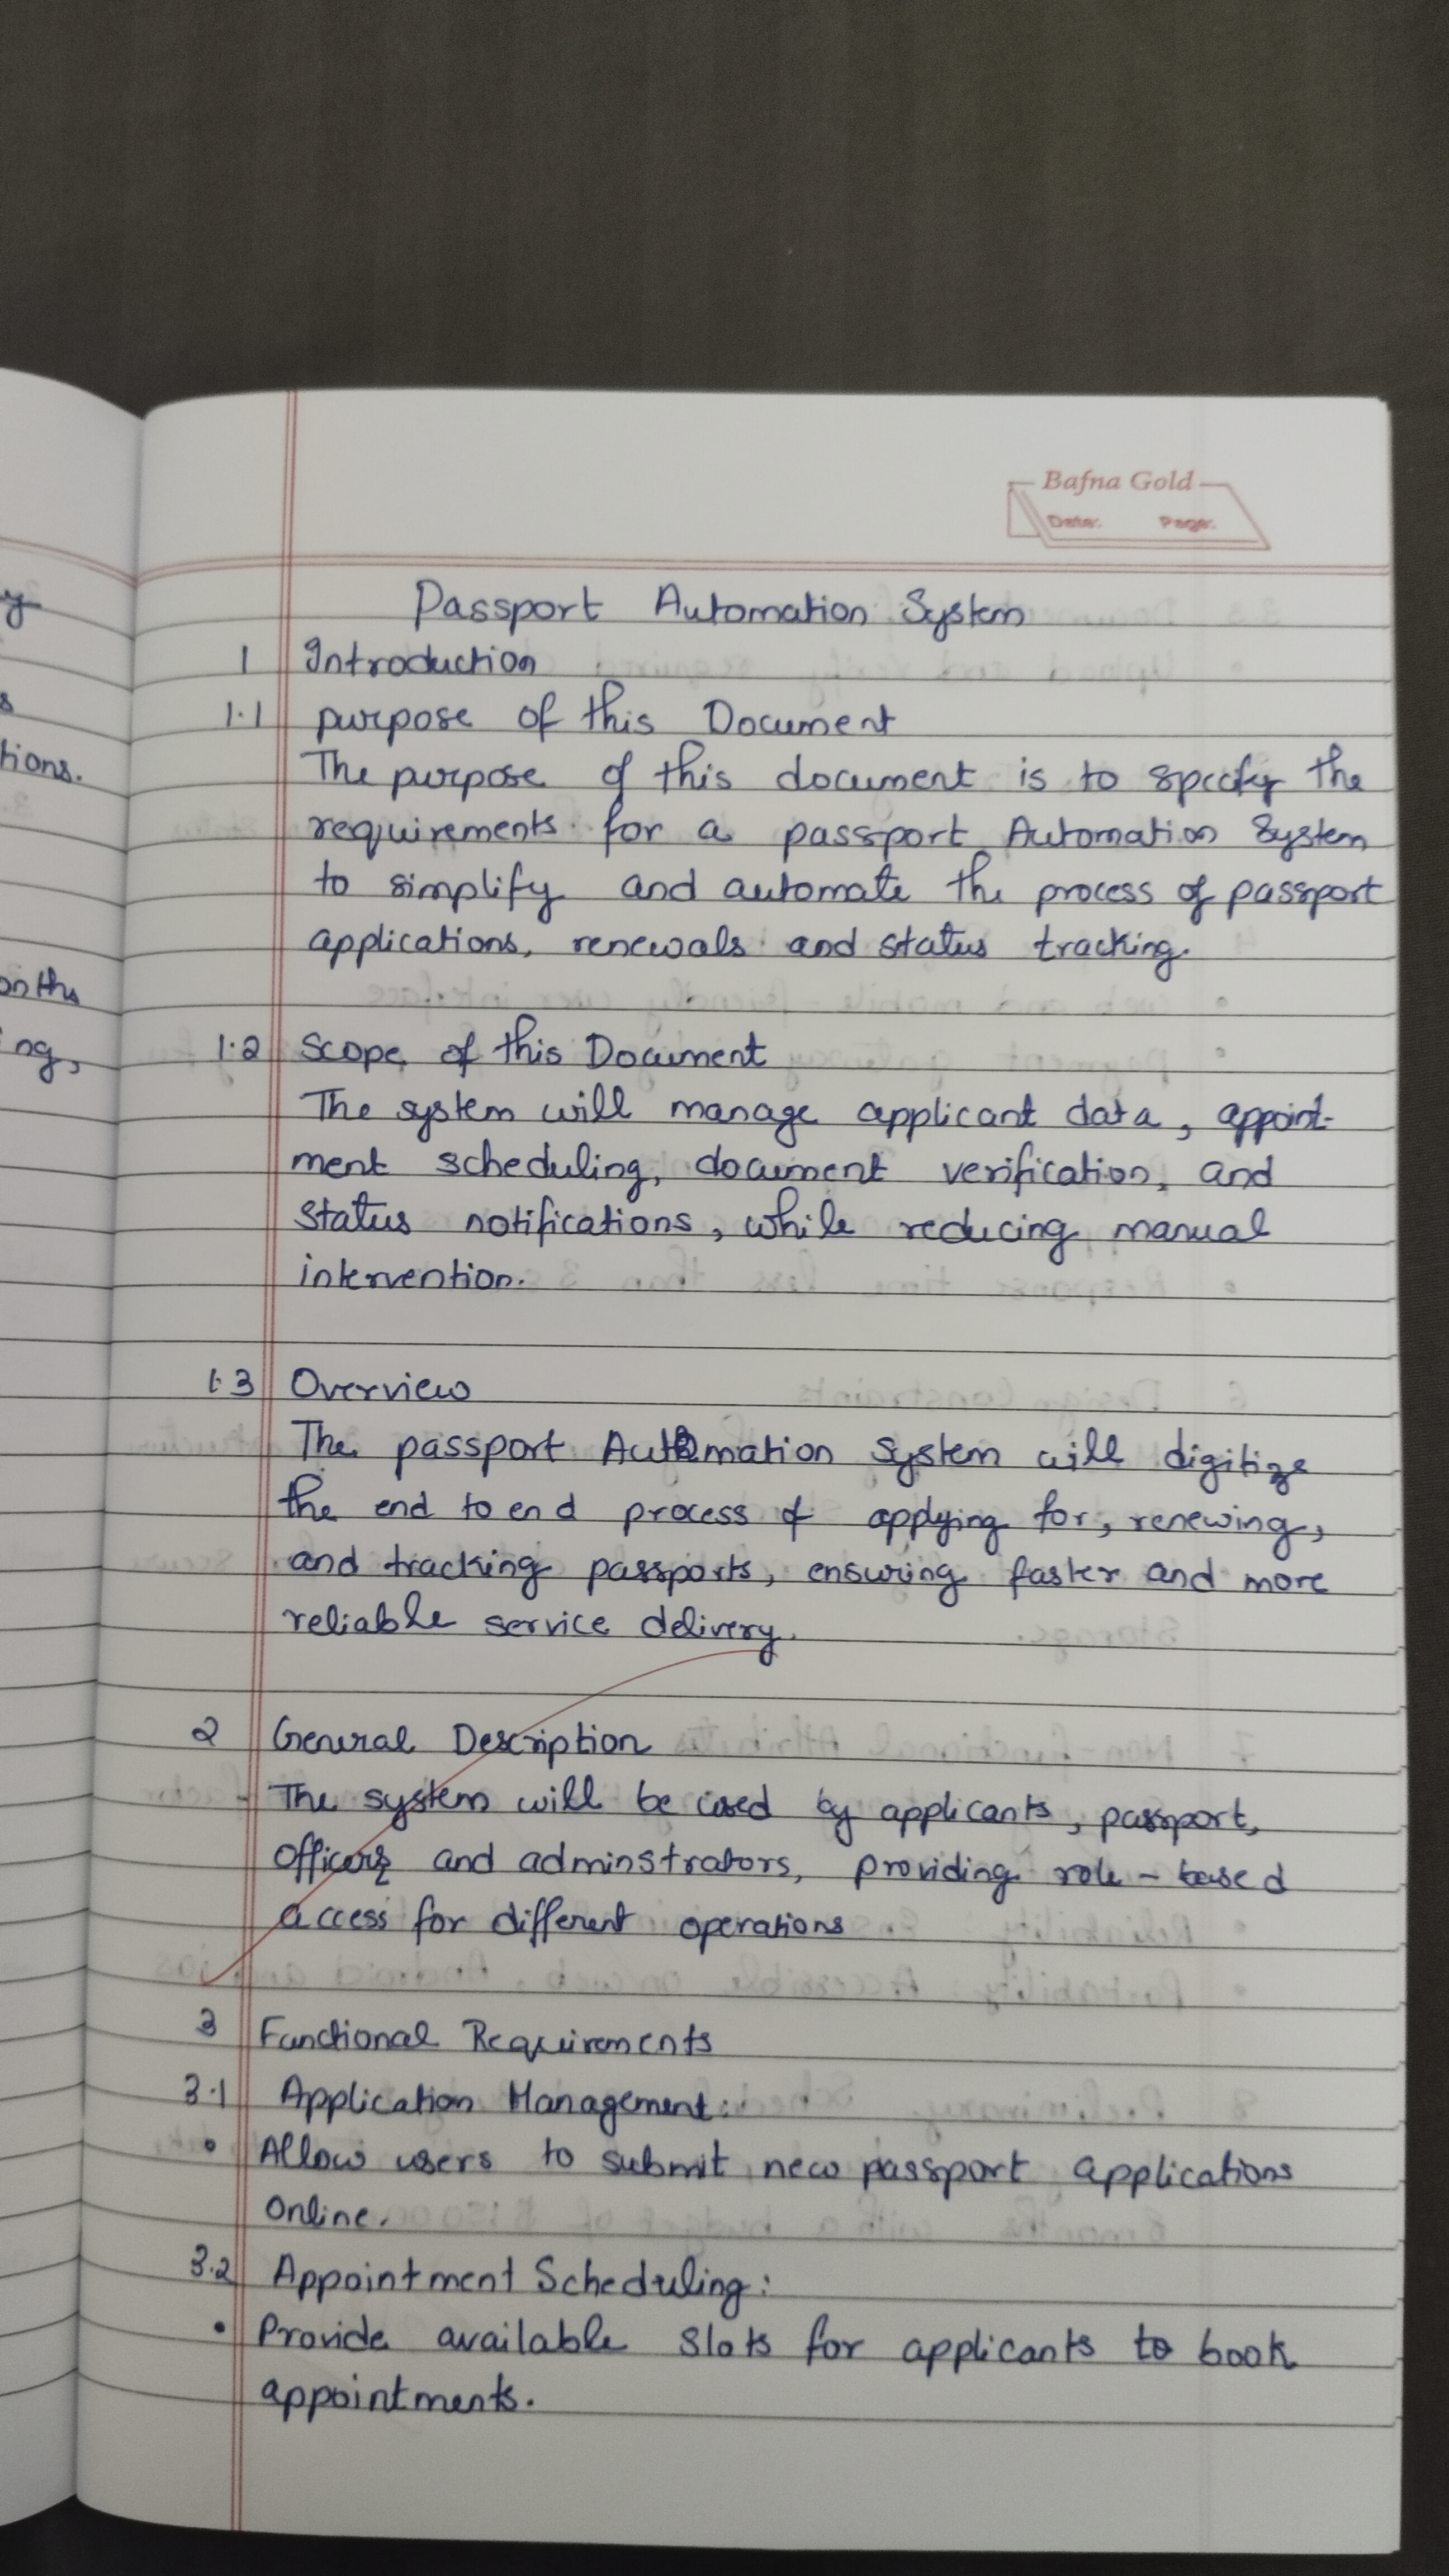 Bafna Gold
Date: Page:
Passport Automation System
1 Introduction
1.1 purpose of this Document
The purpose of this document is to specify the
requirements for a passport Automation System
to simplify and automate the process of passport
applications, renewals and status tracking.
1.2 Scope of this Document
The system will manage applicant data, appoint-
ment scheduling, document verification, and
status notifications, while reducing manual
intervention.
1.3 Overview
The passport Automation System will digitize
the end to end process of applying for, renewing,
and tracking passports, ensuring faster and more
reliable service delivery.
2 General Description
The system will be used by applicants, passport,
officers and adminstrators, providing role - based
access for different operations
3 Functional Requirements
3.1 Application Management:
• Allow users to submit new passport applications
online.
3.2 Appointment Scheduling:
• Provide available slots for applicants to book
appointments.